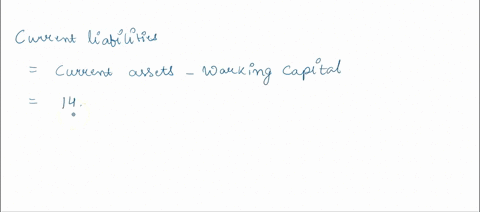 Current liabilities
= Current assets - Working Capital
= 14.